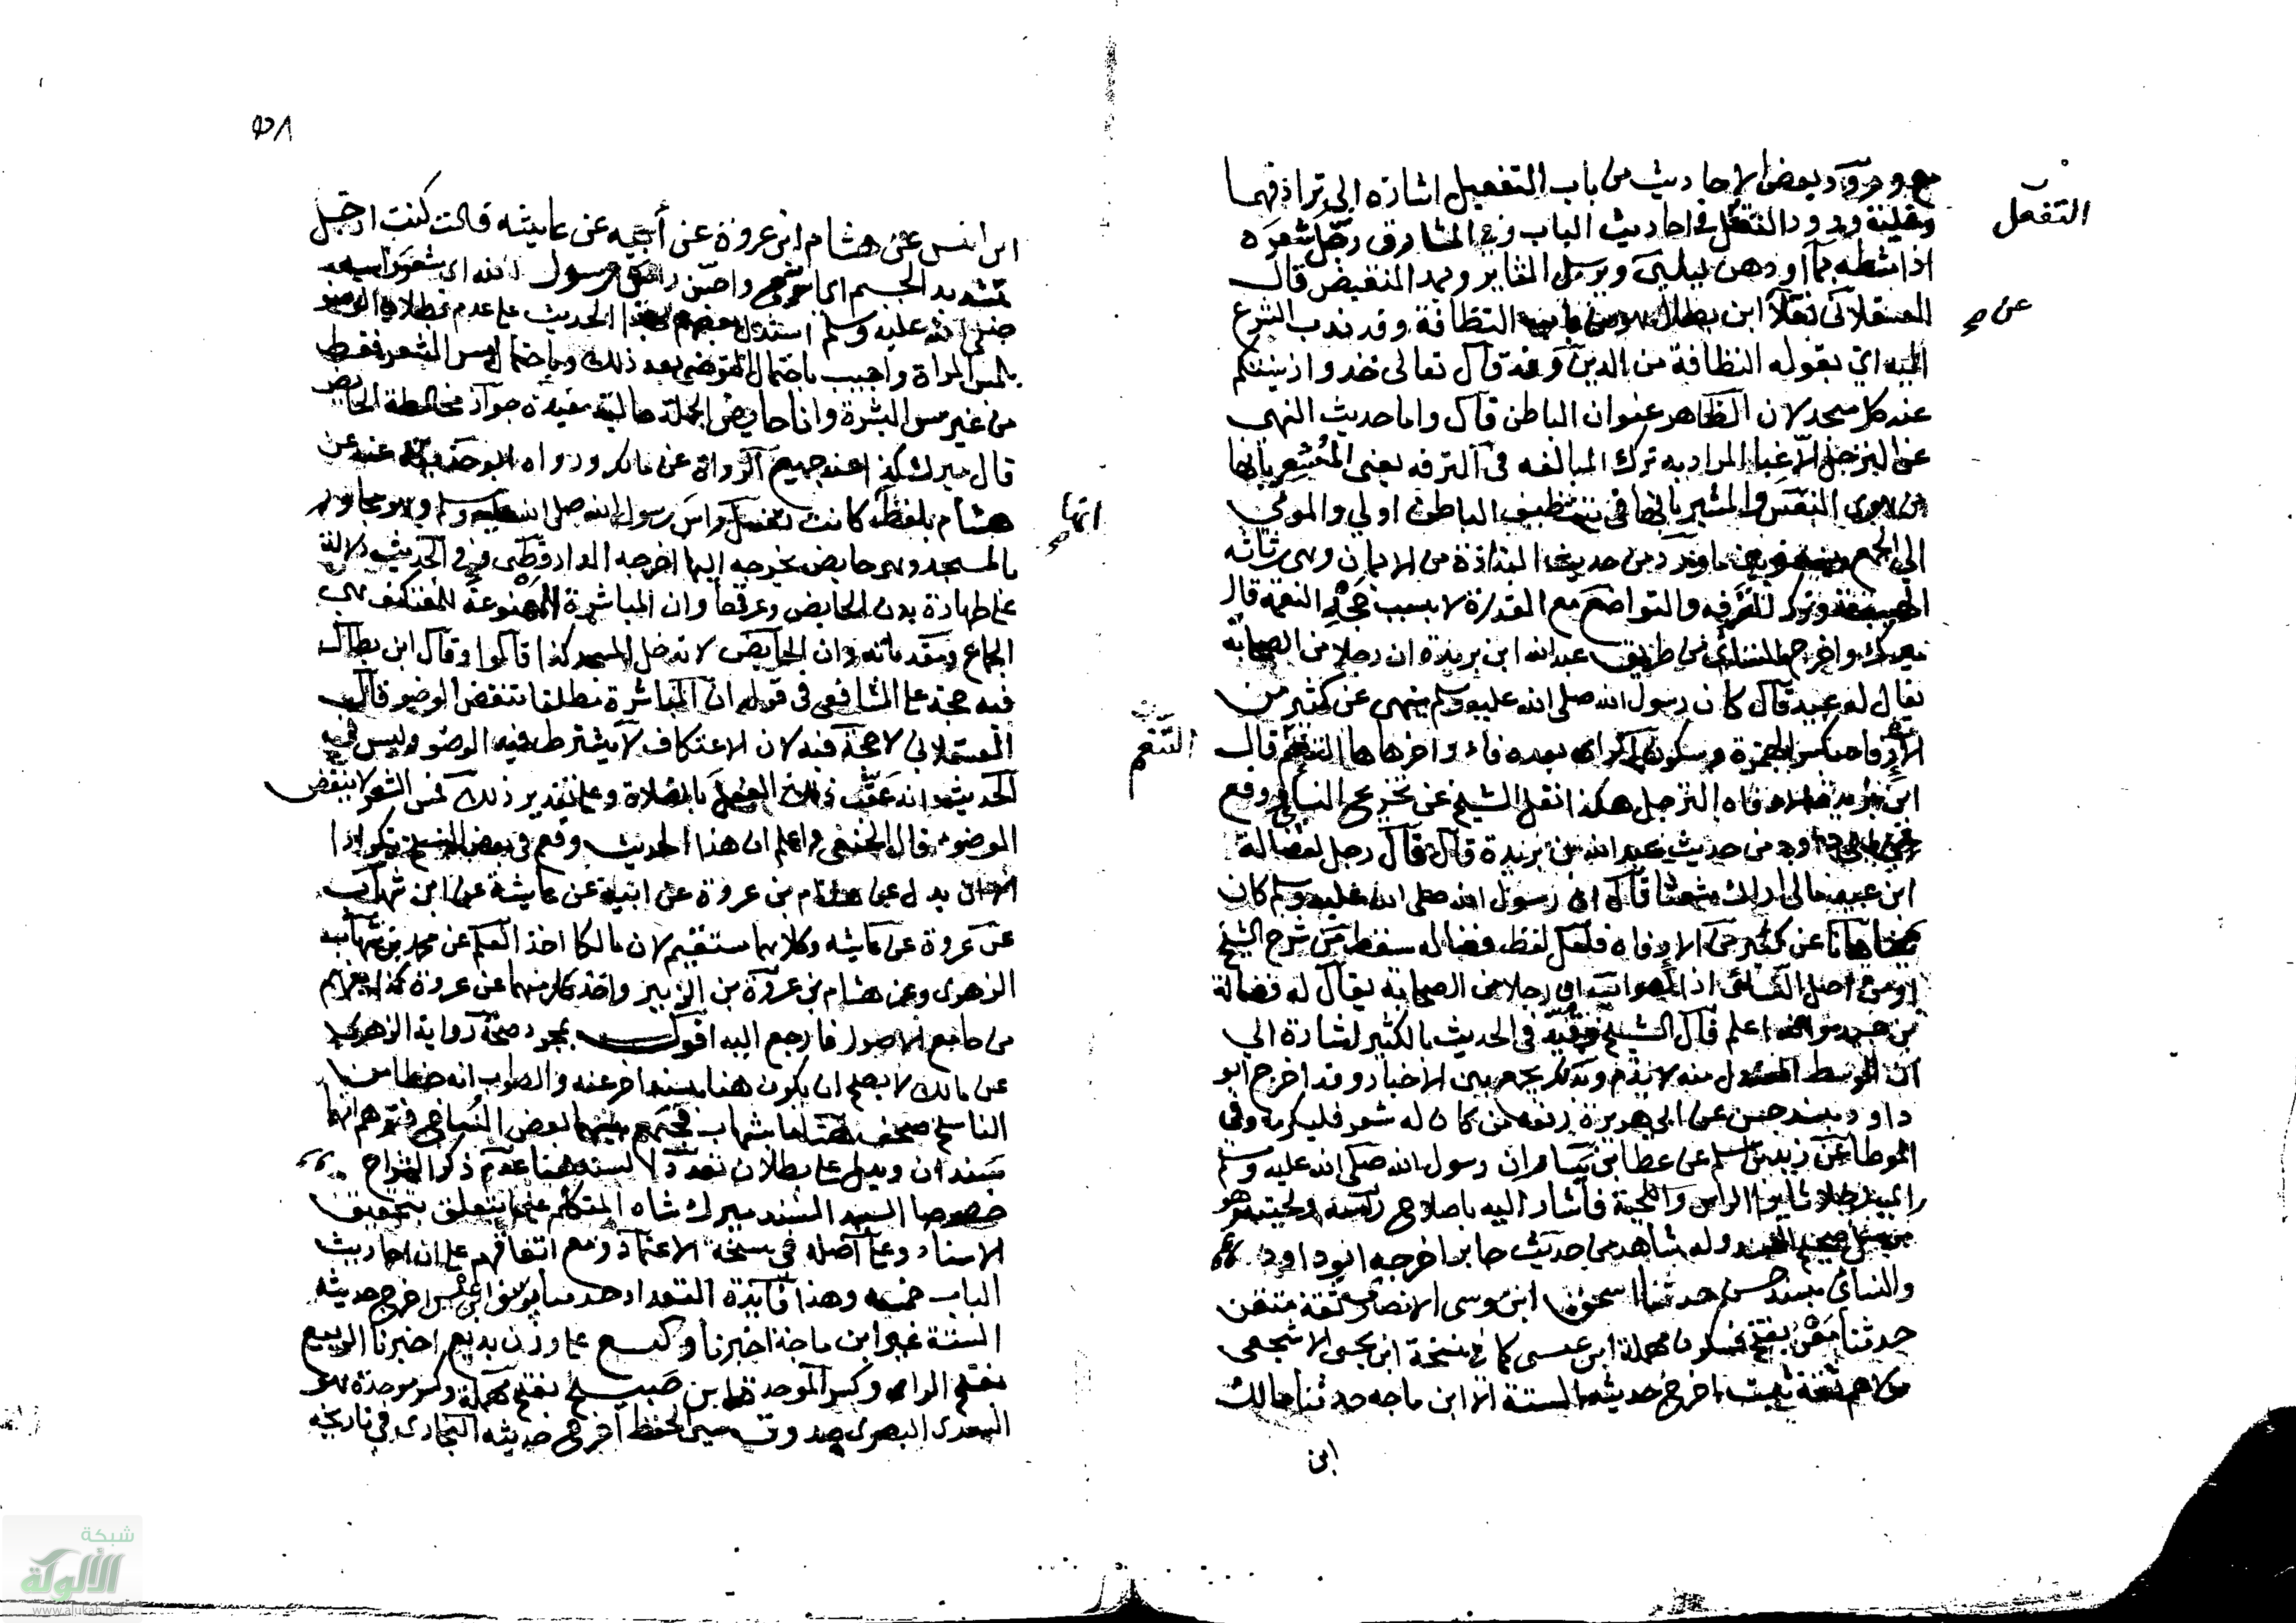 مع ورود بعض الاحاديث من باب التفعيل اشارة الى ترادفهما
التفعل
وقلية ورود التفعل في احاديث الباب وفي المشارق رجّل شعره
اذا مشطه بماء او دهن ليلين ويرسل الثاير ويمد المنقبض قال
العسقلاني نقلا ابن بطال النظافة وقد ندب الشرع
عن صح
اليه اي بقوله النظافة من الدين وفد قال تعالى خذوا زينتكم
عند كل مسجد لان الظاهر عنوان الباطن قال واما حديث النهي
عن الترجل الا غبا المراد به ترك المبالغة في الترفه يعني المشعر بانها
من هوى النفس والمشير بانها في تنظيف الباطن اولى والمومي
الى الجمع ما ورد من حديث البذاذة من الايمان وهي رثاثة
الهيئة وترك الترفه والتواضع مع القدرة لا بسبب جحد النعمة قال
ميرك واخرج النسائي من طريق عبدالله ابن بريدة ان رجلا من الصحابة
يقال له عبيد قال كان رسول الله صلى الله عليه وسلم ينهى عن كثير من
الارفاه بكسر الهمزة وسكون الراء بعده فاء واخرها ها التنعم قال
التنعم
ابن بريدة الارفاه الترجل هكذا نقل الشيخ عن تخريج النسائي ووقع
عن ابي داود من حديث عبد الله بن بريدة قال قال رجل لفضالة
ابن عبيد مالي اراك شعثا قال ان رسول الله صلى الله عليه وسلم كان
ينهانا عن كثير من الارفاه فلعل لفظ فضاله سقط من شرح الشيخ
او من اصل النسائي اذ الصواب ان رجلا من الصحابة يقال له فضالة
بن عبيد والله اعلم قال الشيخ وقيده في الحديث بالكثير اشارة الى
ان الوسط المعتدل منه لا يذم وبذلك يجمع بين الاخبار وقد اخرج ابو
داود بسند حسن عن ابي هريرة رفعه من كان له شعر فليكرمه وفي
الموطا عن زيد بن اسلم عن عطا بن يسار ان رسول الله صلى الله عليه وسلم
راى رجلا ثاير الراس واللحية فاشار اليه باصلاح راسه ولحيته وهو
مرسل صحيح السند وله شاهد من حديث جابر اخرجه ابو داود
والنسائي بسند حسن حدثنا اسحق ابن موسى الانصاري ثقة متقن
حدثنا معن بفتح فسكون مهملة ابن عيسى كما في نسخة ابن يحيى الاشجعي
ثقة ثبت اخرج حديثه الستة الا ابن ماجه حدثنا مالك
ابن
٥٨
ابن انس عن هشام ابن عروة عن أبيه عن عايشة قالت كنت ارجل
بتشديد الجيم اي اسرح واحسن راس رسول الله اي شعر راسه
صلى الله عليه وسلم استدل بعضهم بهذا الحديث على عدم بطلان الوضو
بلمس المراة واجيب باحتمال التوضي بعد ذلك وباحتمال لمس الشعر فقط
من غير مس البشرة وانا حايض الجملة حالية مفيدة جواز مخالطة الحايض
قال ميرك كذا عند جميع الرواة عن مالك ورواه ابو حذيفة عنه عن
هشام بلفظ كانت تغسل راس رسول الله صلى الله عليه وسلم وهو مجاور
انها صح
بالمسجد وهي حايض يخرجه اليها اخرجه الدارقطني وفي الحديث دلالة
على طهارة بدن الحايض وعرقها وان المباشرة الممنوعة للمعتكف هي
الجماع ومقدماته وان الحايض لا تدخل المسجد كذا قالوا وقال ابن بطال
فيه حجة على الشافعي في قوله ان المباشرة مطلقا تنقض الوضو قال
العسقلاني لا حجة فيه لان الاعتكاف لا يشترط فيه الوضو وليس في
الحديث انه عقب ذلك الفعل بالصلاة وعلى تقدير ذلك فمس الشعر لا ينقض
الوضوء قال الحنفي واعلم ان هذا الحديث وقع في بعض النسخ مكررا
بدل عن هشام بن عروة عن ابيه عن عايشة عن ابن شهاب
عن عروة عن عايشه وكلاهما مستقيم لان مالكا اخذ العلم عن محمد بن شهاب
الزهري وعن هشام بن عروة بن الزبير واخذ كل منهما عن عروة كذا يفهم
من جامع الاصول فارجع اليه اقول بمجرد صحة رواية الزهري
عن مالك لا يصلح ان يكون هنا سند اخر عنه والصواب انه خطا من
الناسخ صحف هشاما بشهاب فجمع بينهما بعض النساخ فتوهم انهما
سندان ويدل على بطلان تعدد السند هنا عدم ذكر الشراح
خصوصا السيد السند ميرك شاه المتكلم على ما يتعلق بتحقيق
الاسناد وعلى اصله في نسخة الاعتماد ومع اتفاقهم على ان احاديث
الباب خمسة وهذا فايدة التعداد حدثنا يوسف ابن عيسى اخرج حديثه
الستة غير ابن ماجة اخبرنا وكيع على وزن بديع اخبرنا الربيع
بفتح الراء وكسر الموحدة بن صبيح بفتح مهملة وكسر موحدة
السعدي البصري صدوق سيئ الحفظ اخرج حديثه البخاري في تاريخه
شبكة
الألوكة
www.alukah.net